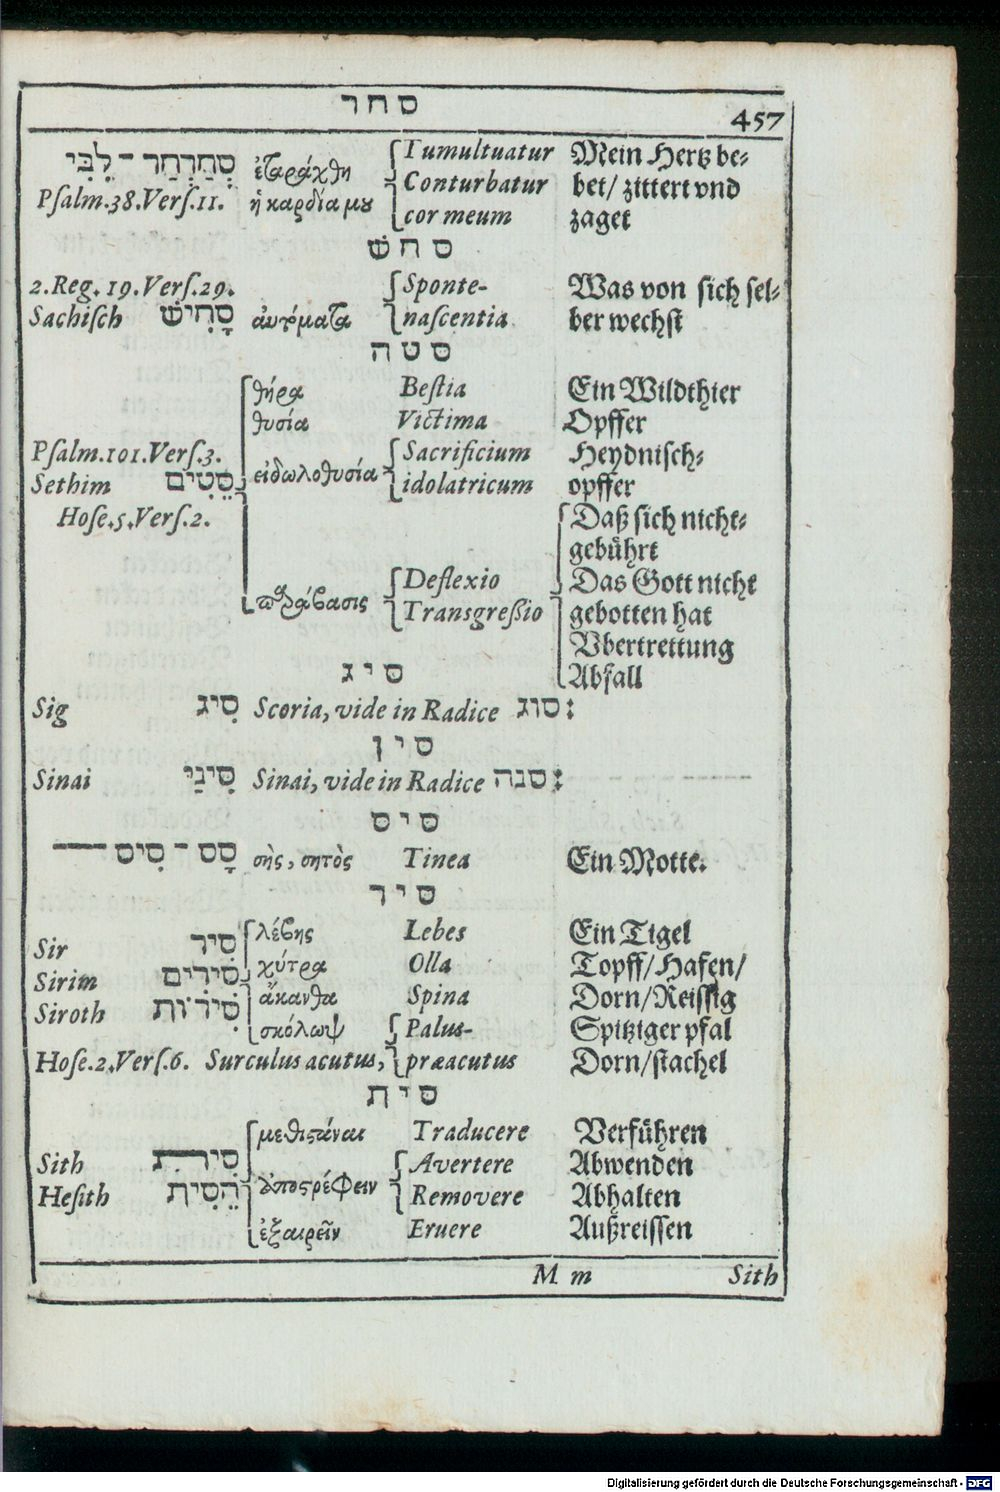 סחר
457
סְחַרְחַר־לִבִּי ἐταράχθη Tumultuatur Mein Hertz be-
Psalm.38.Vers.11. ἡ καρδία μου Conturbatur bet/ zittert vnd
cor meum zaget
סחש
2.Reg. 19.Vers.29. Sponte- Was von sich sel-
Sachisch סָחִישׁ αὐτόματα nascentia ber wechst
סטה
θήρα Bestia Ein Wildthier
θυσία Victima Opffer
Psalm.101.Vers.3. Sacrificium Heydnisch-
Sethim סֵטִים εἰδωλοθυσία idolatricum opffer
Hose.5.Vers.2. Daß sich nicht-
gebührt
Deflexio Das Gott nicht
παράβασις Transgreßio gebotten hat
Vbertrettung
Abfall
סיג
Sig סִיג Scoria, vide in Radice סוג:
סין
Sinai סִינַי Sinai, vide in Radice סנה:
סיס
סָס־סִיס σὴς, σητὸς Tinea Ein Motte.
סיר
Sir סִיר λέβης Lebes Ein Tigel
Sirim סִירִים χύτρα Olla Topff/Hafen/
Siroth סִירוֹת ἄκανθα Spina Dorn/Reissig
σκόλωψ Palus- Spitziger pfal
Hose.2.Vers.6. Surculus acutus, præacutus Dorn/stachel
סית
μεθιστάναι Traducere Verführen
Sith סִית ἀποστρέφειν Avertere Abwenden
Hesith הֵסִית Removere Abhalten
ἐξαιρεῖν Eruere Außreissen
M m Sith
Digitalisierung gefördert durch die Deutsche Forschungsgemeinschaft - DFG